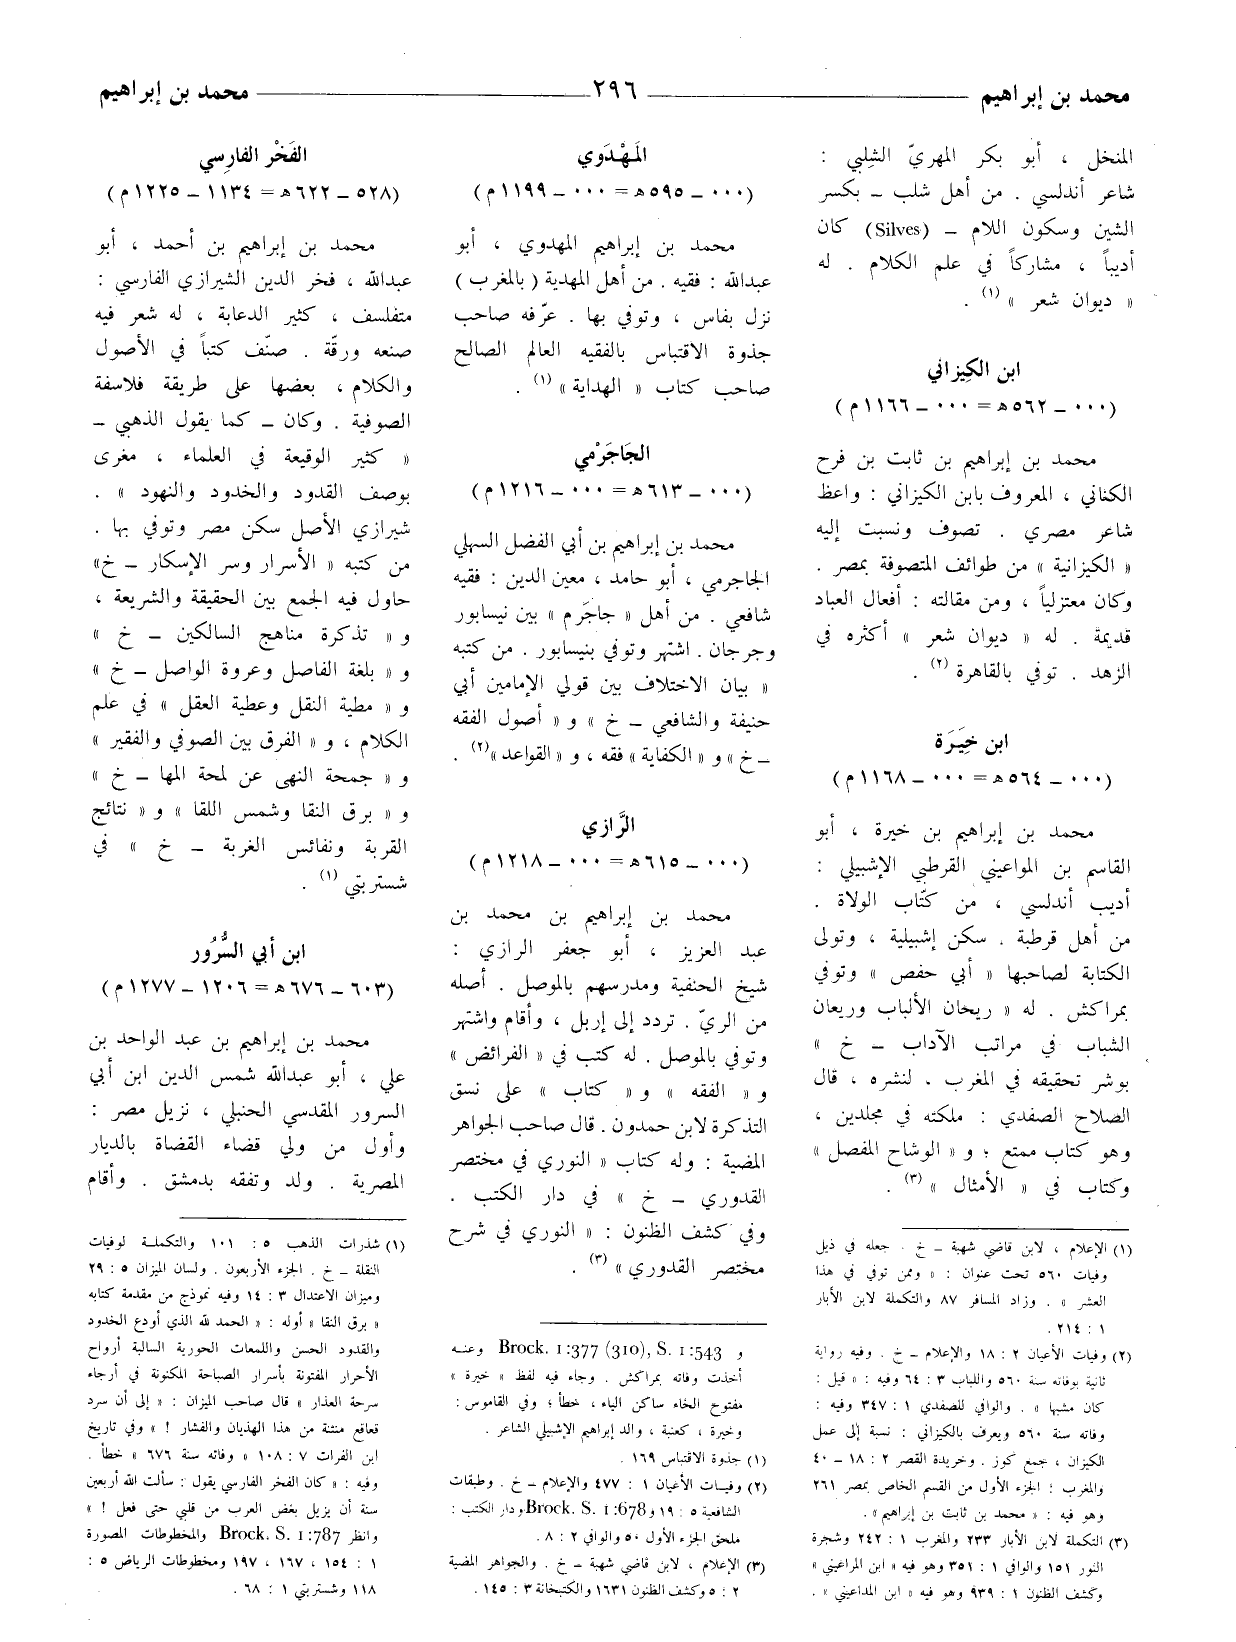 محمد بن إبراهيم
٢٩٦
محمد بن إبراهيم
المنخل ، أبو بكر المهريّ الشِلبي :
شاعر أندلسي . من أهل شلب ــ بكسر
الشين وسكون اللام ــ (Silves) كان
أديباً ، مشاركاً في علم الكلام . له
« ديوان شعر » (١) .
ابن الكِيزاني
(٠٠٠ ــ ٥٦٢ هـ = ٠٠٠ ــ ١١٦٦ م)
محمد بن إبراهيم بن ثابت بن فرح
الكناني ، المعروف بابن الكيزاني : واعظ
شاعر مصري . تصوف ونسبت إليه
« الكيزانية » من طوائف المتصوفة بمصر .
وكان معتزلياً ، ومن مقالته : أفعال العباد
قديمة . له « ديوان شعر » أكثره في
الزهد . توفي بالقاهرة (٢) .
ابن خِيَرَة
(٠٠٠ ــ ٥٦٤ هـ = ٠٠٠ ــ ١١٦٨ م)
محمد بن إبراهيم بن خيرة ، أبو
القاسم بن المواعيني القرطبي الإشبيلي :
أديب أندلسي ، من كتّاب الولاة .
من أهل قرطبة . سكن إشبيلية ، وتولى
الكتابة لصاحبها « أبي حفص » وتوفي
بمراكش . له « ريحان الألباب وريعان
الشباب في مراتب الآداب ــ خ »
بوشر تحقيقه في المغرب ، لنشره ، قال
الصلاح الصفدي : ملكته في مجلدين ،
وهو كتاب ممتع ؛ و « الوشاح المفصل »
وكتاب في « الأمثال » (٣) .
(١) الإعلام ، لابن قاضي شهبة ــ خ . جعله في ذيل
وفيات ٥٦٠ تحت عنوان : « وممن توفي في هذا
العشر » . وزاد المسافر ٨٧ والتكملة لابن الأبار
١ : ٢١٤ .
(٢) وفيات الأعيان ٢ : ١٨ والإعلام ــ خ . وفيه رواية
ثانية بوفاته سنة ٥٦٠ واللباب ٣ : ٦٤ وفيه : « قيل :
كان مشبها » . والوافي للصفدي ١ : ٣٤٧ وفيه :
وفاته سنة ٥٦٠ ويعرف بالكيزاني : نسبة إلى عمل
الكيزان ، جمع كوز . وخريدة القصر ٢ : ١٨ ــ ٤٠
والمغرب : الجزء الأول من القسم الخاص بمصر ٢٦١
وهو فيه : « محمد بن ثابت بن إبراهيم » .
(٣) التكملة لابن الأبار ٢٣٣ والمغرب ١ : ٢٤٢ وشجرة
النور ١٥١ والوافي ١ : ٣٥١ وهو فيه « ابن المراعيني »
وكشف الظنون ١ : ٩٣٩ وهو فيه « ابن المداعيني » .
المَهْدَوي
(٠٠٠ ــ ٥٩٥ هـ = ٠٠٠ ــ ١١٩٩ م)
محمد بن إبراهيم المهدوي ، أبو
عبدالله : فقيه . من أهل المهدية ( بالمغرب )
نزل بفاس ، وتوفي بها . عرّفه صاحب
جذوة الاقتباس بالفقيه العالم الصالح
صاحب كتاب « الهداية » (١) .
الجَاجَرْمي
(٠٠٠ ــ ٦١٣ هـ = ٠٠٠ ــ ١٢١٦ م)
محمد بن إبراهيم بن أبي الفضل السهلي
الجاجرمي ، أبو حامد ، معين الدين : فقيه
شافعي . من أهل « جاجَرم » بين نيسابور
وجرجان . اشتهر وتوفي بنيسابور . من كتبه
« بيان الاختلاف بين قولي الإمامين أبي
حنيفة والشافعي ــ خ » و « أصول الفقه
ــ خ » و « الكفاية » فقه ، و « القواعد » (٢) .
الرَّازي
(٠٠٠ ــ ٦١٥ هـ = ٠٠٠ ــ ١٢١٨ م)
محمد بن إبراهيم بن محمد بن
عبد العزيز ، أبو جعفر الرازي :
شيخ الحنفية ومدرسهم بالموصل . أصله
من الريّ . تردد إلى إربل ، وأقام واشتهر
وتوفي بالموصل . له كتب في « الفرائض »
و « الفقه » و « كتاب » على نسق
التذكرة لابن حمدون . قال صاحب الجواهر
المضية : وله كتاب « النوري في مختصر
القدوري ــ خ » في دار الكتب .
وفي كشف الظنون : « النوري في شرح
مختصر القدوري » (٣) .
و Brock. 1:377 (310), S. 1:543 وعنه
أخذت وفاته بمراكش . وجاء فيه لفظ « خيرة »
مفتوح الخاء ساكن الياء ، خطأ ؛ وفي القاموس :
وخيرة ، كعنبة ، والد إبراهيم الإشبيلي الشاعر .
(١) جذوة الاقتباس ١٦٩ .
(٢) وفيات الأعيان ١ : ٤٧٧ والإعلام ــ خ . وطبقات
الشافعية ٥ : ١٩ و Brock. S. 1:678 ودار الكتب :
ملحق الجزء الأول ٥٠ والوافي ٢ : ٨ .
(٣) الإعلام ، لابن قاضي شهبة ــ خ . والجواهر المضية
٢ : ٥ وكشف الظنون ١٦٣١ والكتبخانة ٣ : ١٤٥ .
الفَخْر الفارِسي
(٥٢٨ ــ ٦٢٢ هـ = ١١٣٤ ــ ١٢٢٥ م)
محمد بن إبراهيم بن أحمد ، أبو
عبدالله ، فخر الدين الشيرازي الفارسي :
متفلسف ، كثير الدعابة ، له شعر فيه
صنعه ورقّة . صنّف كتباً في الأصول
والكلام ، بعضها على طريقة فلاسفة
الصوفية . وكان ــ كما يقول الذهبي ــ
« كثير الوقيعة في العلماء ، مغرى
بوصف القدود والخدود والنهود » .
شيرازي الأصل سكن مصر وتوفي بها .
من كتبه « الأسرار وسر الإسكار ــ خ»
حاول فيه الجمع بين الحقيقة والشريعة ،
و « تذكرة مناهج السالكين ــ خ »
و « بلغة الفاصل وعروة الواصل ــ خ »
و « مطية النقل وعطية العقل » في علم
الكلام ، و « الفرق بين الصوفي والفقير »
و « جمحة النهى عن لمحة المها ــ خ »
و « برق النقا وشمس اللقا » و « نتائج
القربة ونفائس الغربة ــ خ » في
شستربتي (١) .
ابن أبي السُّرُور
(٦٠٣ ــ ٦٧٦ هـ = ١٢٠٦ ــ ١٢٧٧ م)
محمد بن إبراهيم بن عبد الواحد بن
علي ، أبو عبدالله شمس الدين ابن أبي
السرور المقدسي الحنبلي ، نزيل مصر :
وأول من ولي قضاء القضاة بالديار
المصرية . ولد وتفقه بدمشق . وأقام
(١) شذرات الذهب ٥ : ١٠١ والتكملة لوفيات
النقلة ــ خ . الجزء الأربعون . ولسان الميزان ٥ : ٢٩
وميزان الاعتدال ٣ : ١٤ وفيه نموذج من مقدمة كتابه
« برق النقا » أوله : « الحمد لله الذي أودع الخدود
والقدود الحسن واللمعات الحورية السالبة أرواح
الأحرار المفتونة بأسرار الصباحة المكنونة في أرجاء
سرحة العذار » قال صاحب الميزان : « إلى أن سرد
قعاقع منتنة من هذا الهذيان والفشار ! » وفي تاريخ
ابن الفرات ٧ : ١٠٨ « وفاته سنة ٦٧٦ » خطأ .
وفيه : « كان الفخر الفارسي يقول : سألت الله أربعين
سنة أن يزيل بغض العرب من قلبي حتى فعل ! »
وانظر Brock. S. 1:787 والمخطوطات المصورة
١ : ١٥٤ ، ١٦٧ ، ١٩٧ ومخطوطات الرياض ٥ :
١١٨ وشستربتي ١ : ٦٨ .